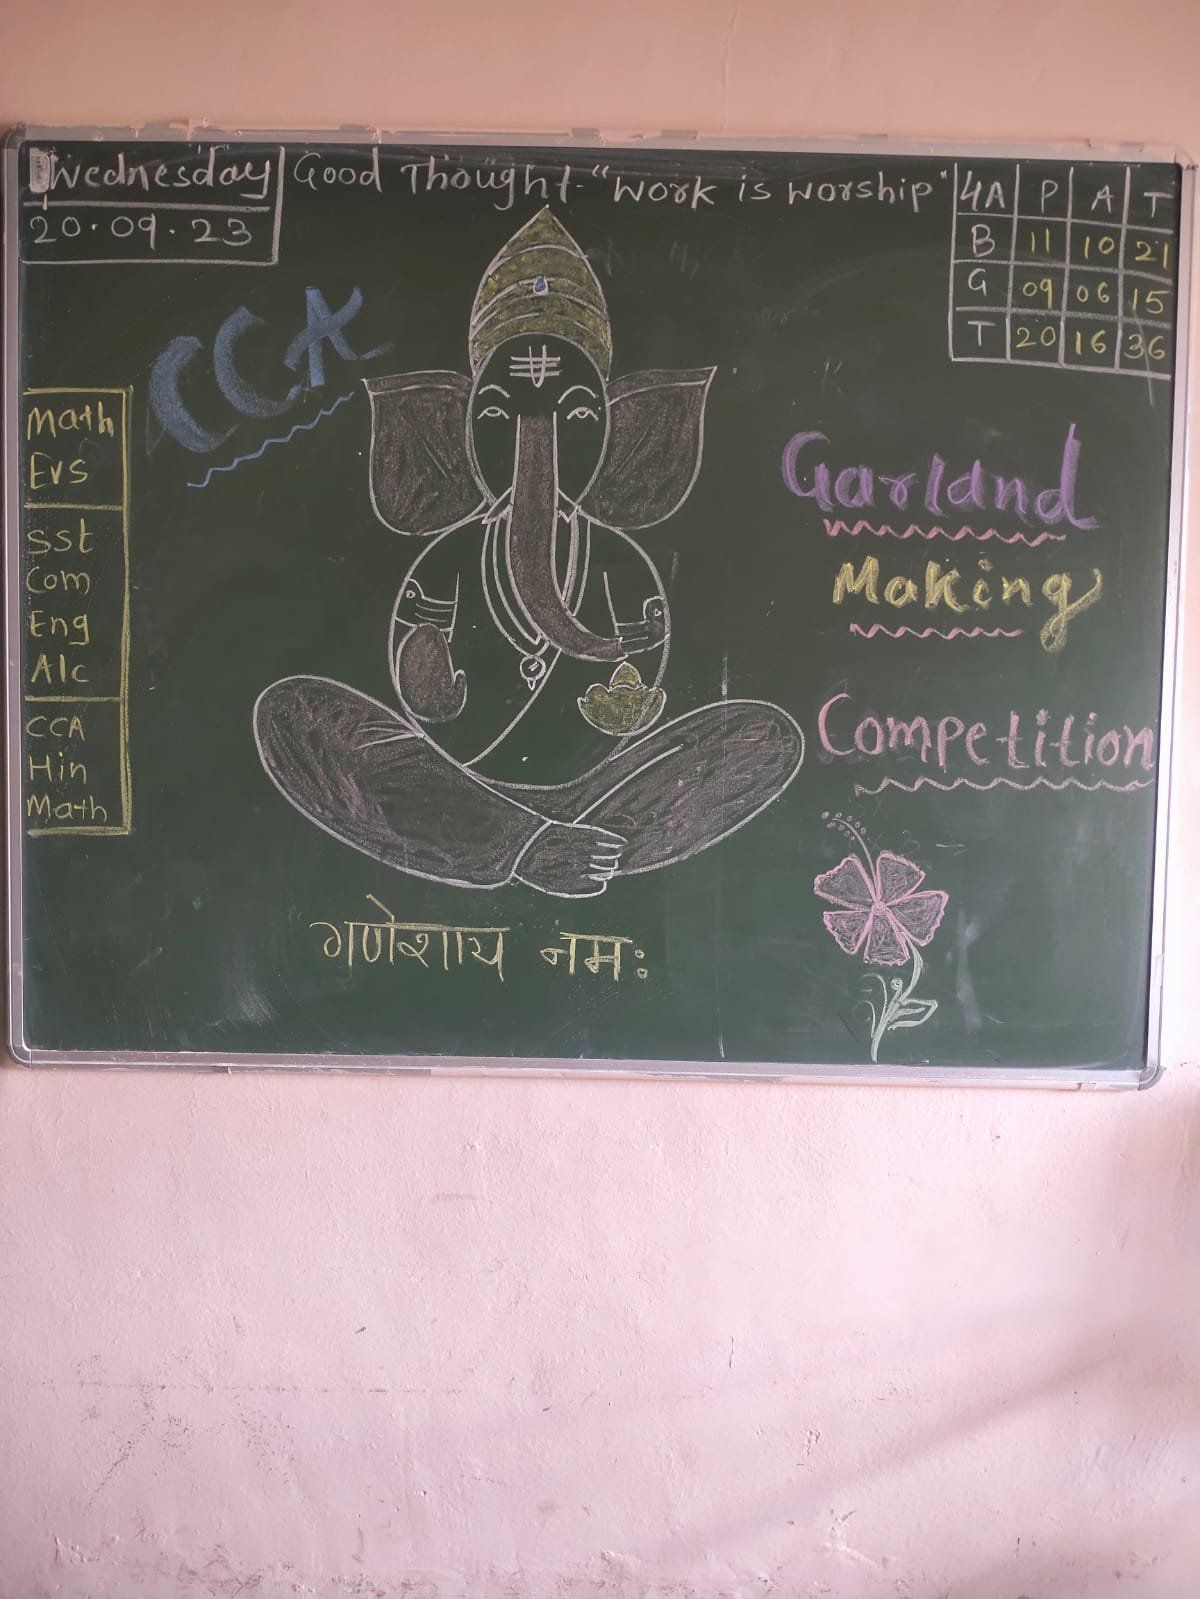 Wednesday
20.09.23
Good Thought - "Work is worship"
4A P A T
B 11 10 21
G 09 06 15
T 20 16 36
CCA
Math
Evs
SSt
Com
Eng
Alc
CCA
Hin
Math
Garland
Making
Competition
गणेशाय नमः